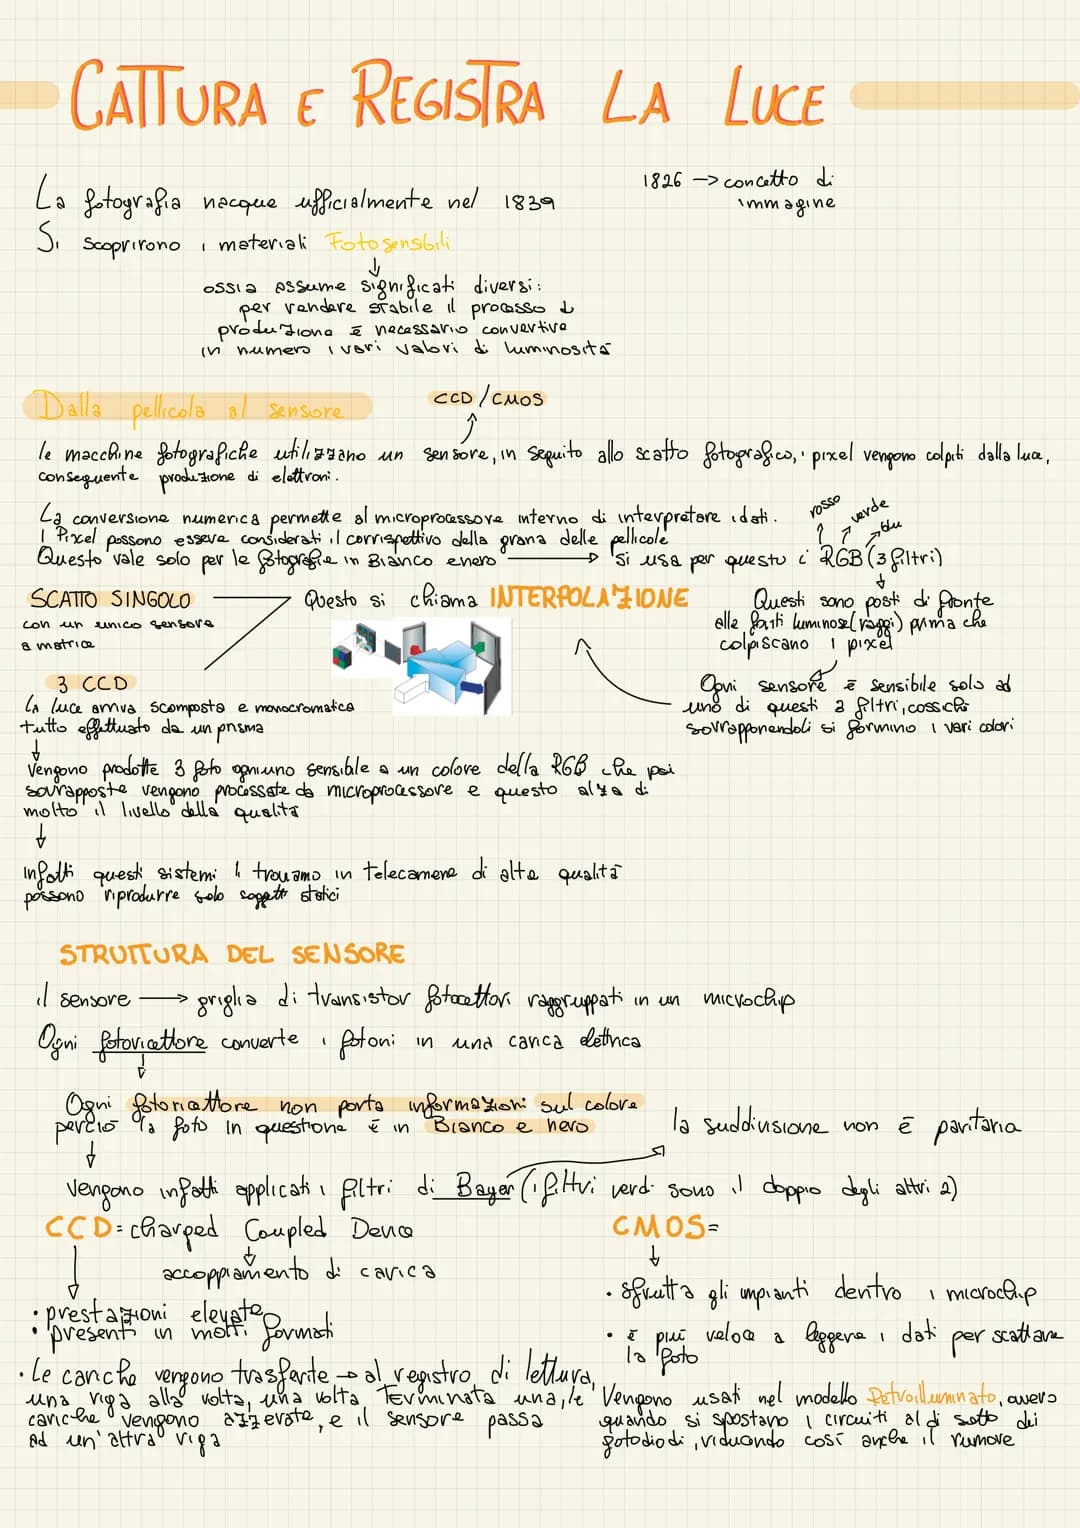 CATTURA E REGISTRA LA LUCE
1826 → concetto di
immagine
La fotografia nacque ufficialmente nel 1839
Si scoprirono i materiali Fotosensibili
ossia assume significati diversi:
per rendere stabile il processo di
produzione è necessario convertire
in numero i vari valori di luminosità
Dalla pellicola al sensore
CCD/CMOS
le macchine fotografiche utilizzano un sensore, in seguito allo scatto fotografico, i pixel vengono colpiti dalla luce,
conseguente produzione di elettroni.
La conversione numerica permette al microprocessore interno di interpretare i dati.
rosso
verde
blu
I Pixel possono essere considerati il corrispettivo della grana delle pellicole
Questo vale solo per le fotografie in Bianco e nero → si usa per questo i RGB (3 filtri)
SCATTO SINGOLO
con un unico sensore
a matrice
Questo si chiama INTERPOLAZIONE
Questi sono posti di fronte
alle fonti luminose (raggi) prima che
colpiscano i pixel
3 CCD
La luce arriva scomposta e monocromatica
tutto effettuato da un prisma
Ogni sensore è sensibile solo ad
uno di questi 3 filtri, cossiché
sovrapponendoli si formino i vari colori
Vengono prodotte 3 foto ogniuno sensibile a un colore della RGB che poi
sovrapposte vengono processate da microprocessore e questo alza di
molto il livello della qualità
Infatti questi sistemi li troviamo in telecamere di alta qualità
possono riprodurre solo soggetti statici
STRUTTURA DEL SENSORE
il sensore → griglia di transistor fotocettori raggruppati in un microchip
Ogni fotoricettore converte i fotoni in una carica elettrica
Ogni fotoricettore non porta informazioni sul colore
perciò la foto in questione è in Bianco e nero
la suddivisione non è paritaria
Vengono infatti applicati i filtri di Bayer (i filtri verdi sono il doppio degli altri 2)
CCD = charged Coupled Device
accoppiamento di carica
• prestazioni elevate
• presenti in molti formati
• Le cariche vengono trasferite → al registro di lettura,
una riga alla volta, una volta Terminata una, le
cariche vengono azzerate, e il sensore passa
ad un'altra riga
CMOS=
• sfrutta gli impianti dentro i microchip
• è più veloce a leggere i dati per scattare
la foto
Vengono usati nel modello Retroilluminato, ovvero
quando si spostano i circuiti al di sotto dei
fotodiodi, riducendo così anche il rumore